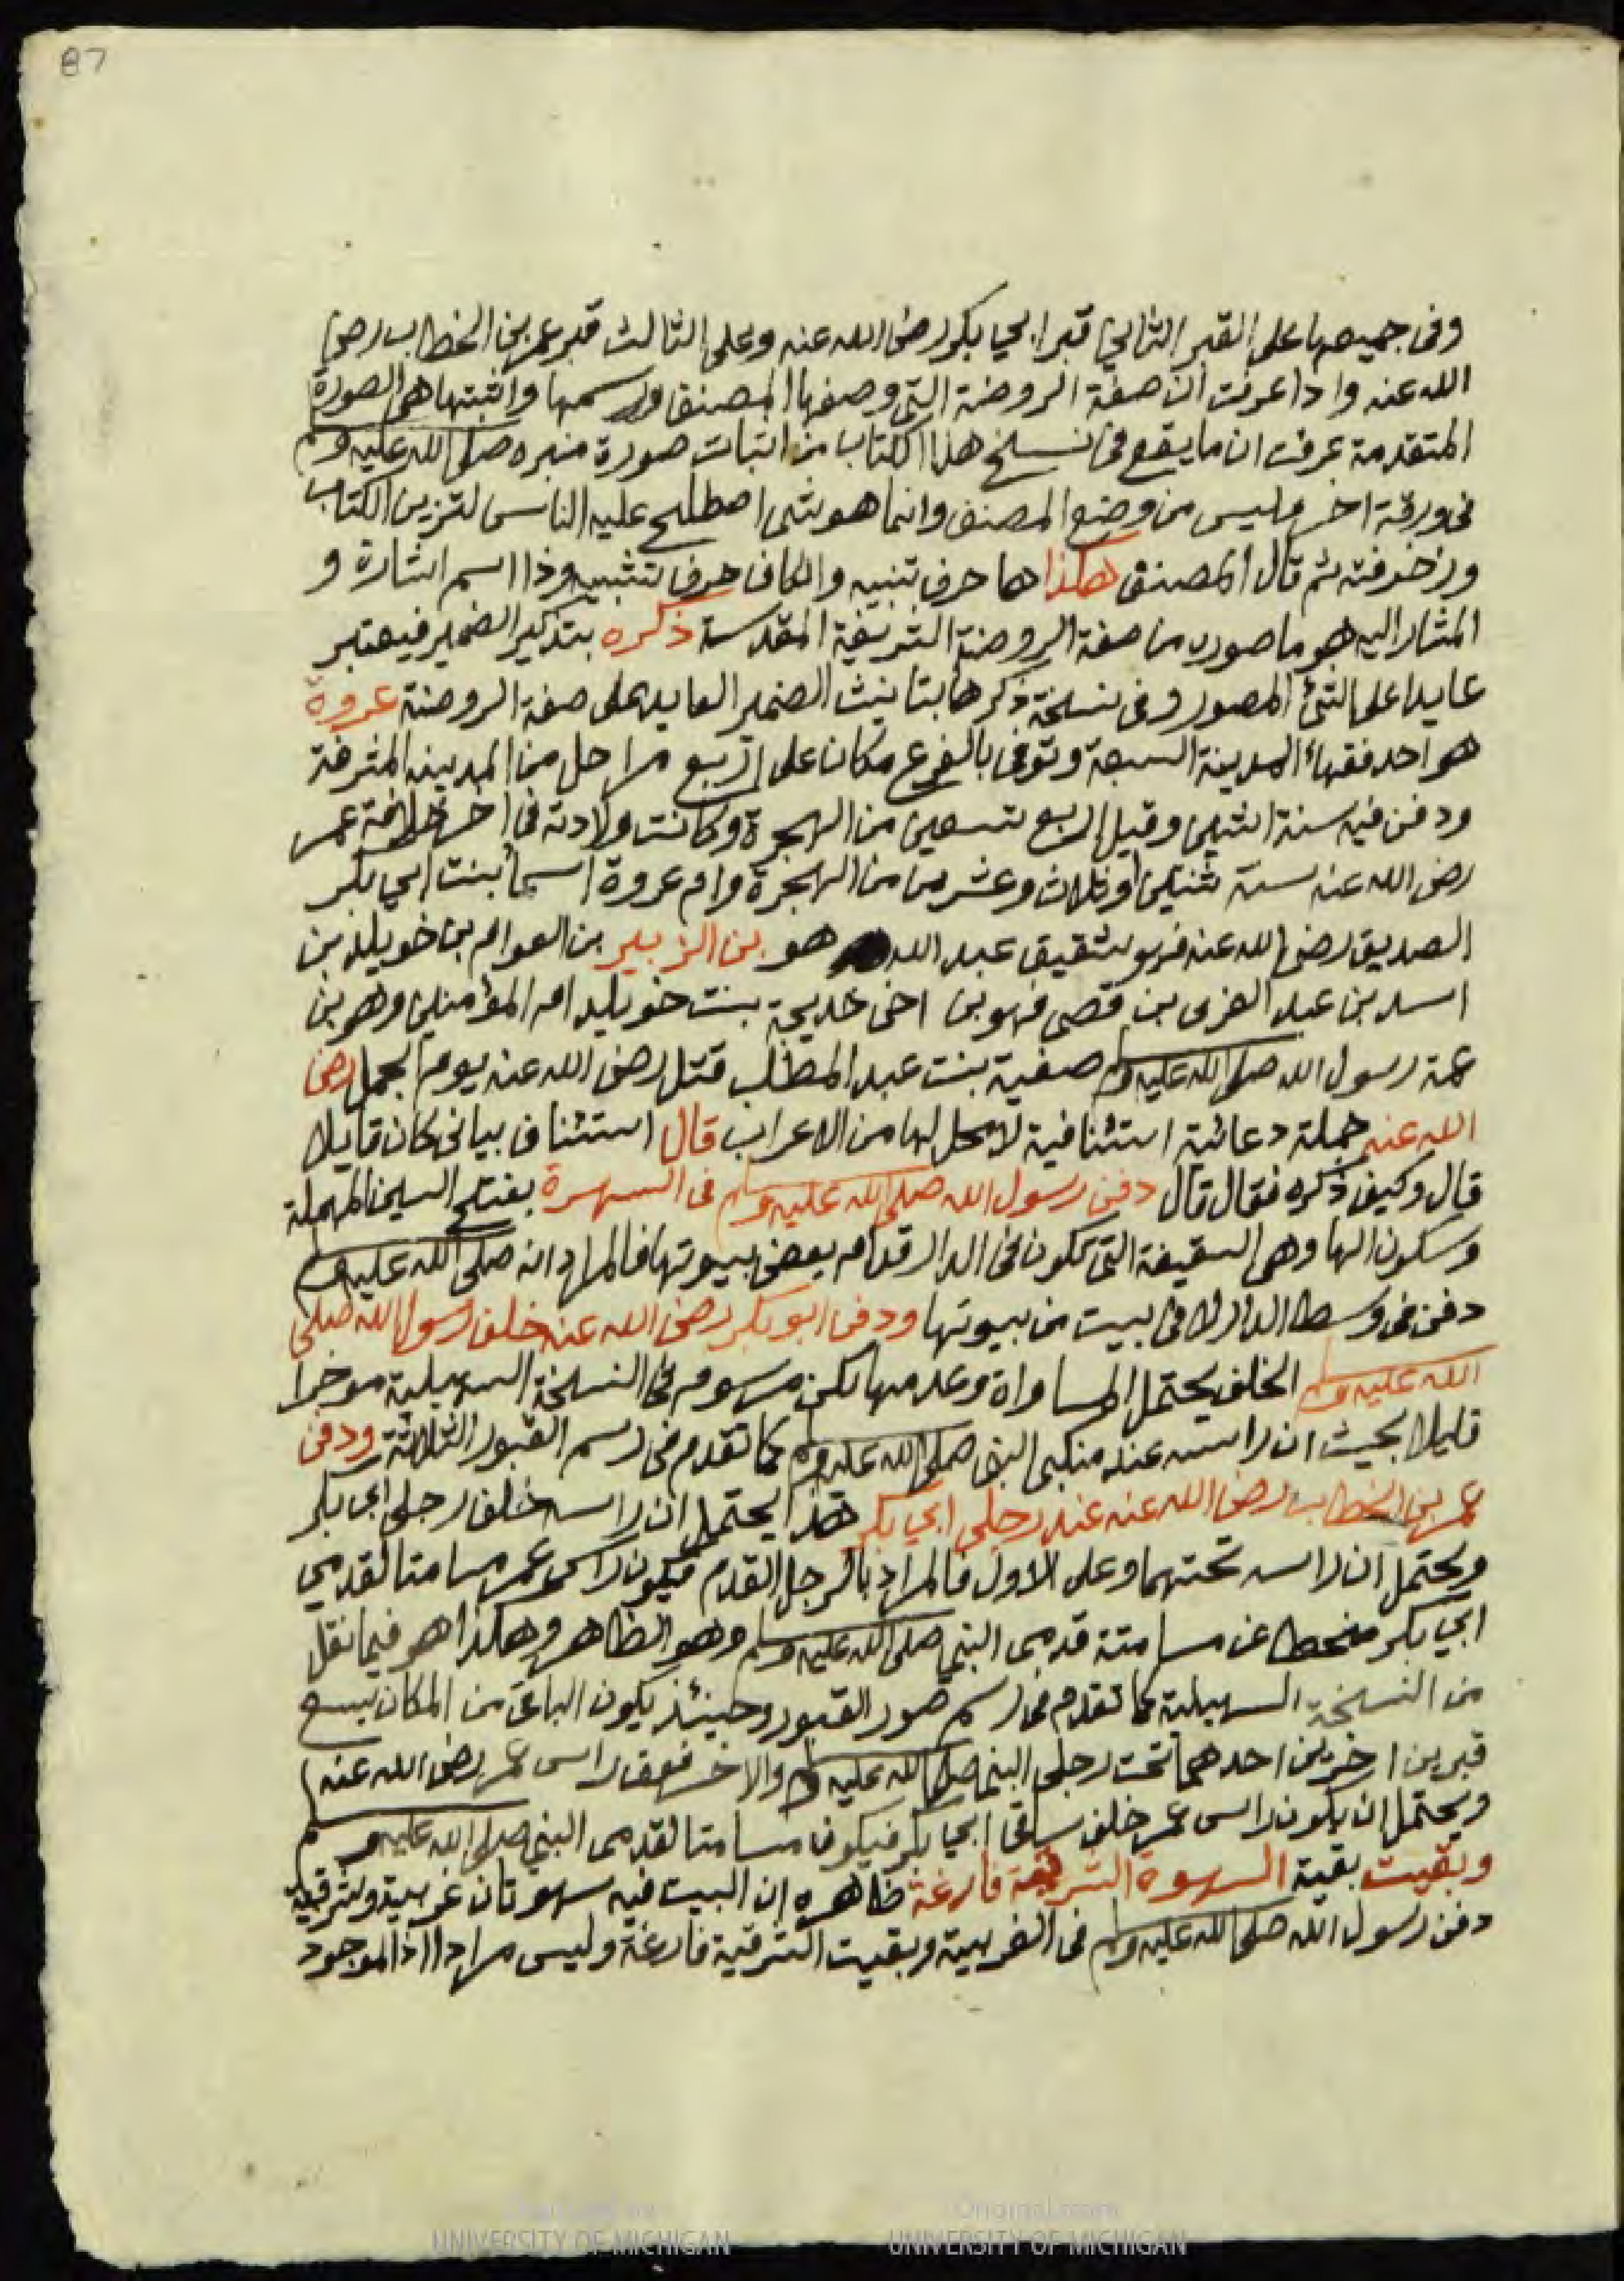 87
وفى جميعها على القبر الثاني قبر ابي بكر رضى الله عنه وعلى الثالث قبر عمر بن الخطاب رضي
الله عنه واذا عرفت ان صفة الروضة التى وصفها المصنف ورسمها واثبتها هى الصورة
المتقدمة عرفت ان ما يقع فى نسخ هذا الكتاب من اثبات صورة منبره صلى الله عليه وسلم
فى ورقة اخرى فليس من وضع المصنف وانما هو شى اصطلح عليه الناس لتزيين الكتاب
وزخرفته ثم قال المصنف هكذا ها حرف تنبيه والكاف حرف تشبيه وذا اسم اشارة و
المشار اليه هو ما صوره من صفة الروضة الشريفة المقدسة ذكره بتذكير الضمير فيعتبر
عايدا على الشئ المصور وفى نسخة ذكرها بتانيث الضمير العايد على صفة الروضة عروة
هو احد فقهاء المدينة السبعة وتوفى بالفرع مكان على اربع مراحل من المدينة المشرفة
ودفن فيه سنة اثنين وقيل اربع تسعين من الهجرة وكانت ولادته فى اخر خلافة عمر
رضى الله عنه سنة ثنتين او ثلاث وعشرين من الهجرة وام عروة اسمأ بنت ابي بكر
الصديق رضى الله عنه فهو شقيق عبد الله هو بن الزبير بن العوام بن خويلد بن
اسد بن عبد العزى بن قصى فهو بن اخى خديجة بنت خويلد ام المؤمنين وهو بن
عمة رسول الله صلى الله عليه وسلم صفية بنت عبد المطلب قتل رضى الله عنه يوم الجمل رضى
الله عنه جملة دعائية استئنافية لا محل لها من الاعراب قال استئناف بيانى كان قايلا
قال وكيف ذكره فقال قال دفن رسول الله صلى الله عليه وسلم فى السهوة بفتح السين المهملة
وسكون الها وهى السقيفة التى تكون فى الدار قدام بعض بيوتها فالمراد انه صلى الله عليه وسلم
دفن فى وسط الدار لا فى بيت من بيوتها ودفن ابو بكر رضى الله عنه خلف رسول الله صلى
الله عليه وسلم الخلف يحتمل المساواة وعدمها لكن مرسوم فى النسخة السهيلية موخرا
قليلا بحيث ان راسه عند منكبى النبى صلى الله عليه وسلم كما تقدم فى رسم القبور الثلاثة ودفن
عمر بن الخطاب رضى الله عنه عند رجلى ابي بكر هذا يحتمل ان راسه خلف رجلى ابى بكر
ويحتمل ان راسه تحتهما وعلى الاول فالمراد بالرجل القدم فيكون راس عمر مسامتا لقدمي
ابي بكر منحطا عن مسامتة قدمى النبي صلى الله عليه وسلم وهو الظاهر وهكذا هو فيما نقل
من النسخة السهيلية كما تقدم فى رسم صور القبور وحينئذ يكون الباقى من المكان يسع
قبرين اخرين احدهما تحت رجلى النبي صلى الله عليه وسلم والاخر فوق راس عمر رضى الله عنه
ويحتمل ان يكون راس عمر خلف ساقى ابي بكر فيكون مسامتا لقدمى النبي صلى الله عليه وسلم
وبقيت بقية السهوة الشرقية فارغة ظاهره ان البيت فيه سهوتان غربية وشرقية
دفن رسول الله صلى الله عليه وسلم فى الغربية وبقيت الشرقية فارغة وليس مرادا اذ الموجود
UNIVERSITY OF MICHIGAN
Original from
UNIVERSITY OF MICHIGAN